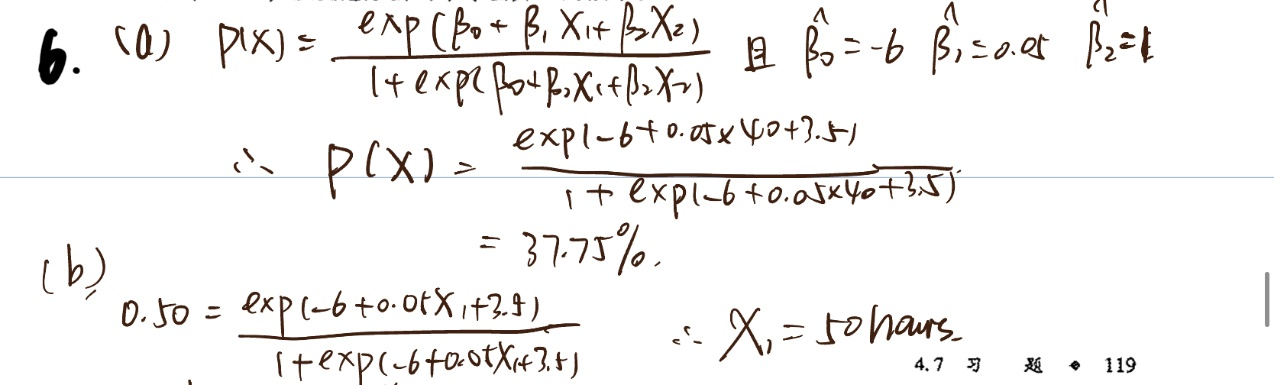 6. (a) P(X) = exp(β₀ + β₁X₁ + β₂X₂) / 1 + exp(β₀ + β₁X₁ + β₂X₂) 且 β̂₀ = -6 β̂₁ = 0.05 β̂₂ = 1
∴ P(X) = exp(-6 + 0.05×40 + 3.5) / 1 + exp(-6 + 0.05×40 + 3.5)
= 37.75%.
(b)
0.50 = exp(-6 + 0.05X₁ + 3.5) / 1 + exp(-6 + 0.05X₁ + 3.5) ∴ X₁ = 50 hours.
4.7 习 题 ◆ 119